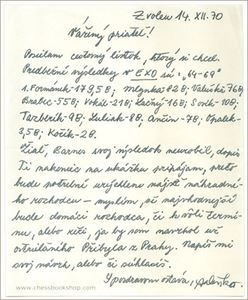 Zvolen 14. XII. 70
Vážený priateľ!
Posielam cestovný lístok, ktorý si chcel.
Predbežné výsledky v EXO sú = "64-69"
1. Formánek - 179,5B; Mlynka 82B; Valuška 76B;
Brabec - 55B; Vokál - 21B; Lačný - 16B; Sivák - 10B;
Tazberík - 9B; Luliak - 8B; Ančin - 7B; Opálek -
3,5B; Kozík - 2B.
Žiaľ, Barnes svoj výsledok neurobil, dopis
Ti nakoniec na ukážku prikladám, preto
bude potrebné urýchlene nájsť náhradné-
ho rozhodcu - myslím, že najvhodnejší
bude domáci rozhodca, či kvôli termí-
nu, alebo reči, ja by som navrhol
Přibyla z Prahy. Napíš mi
svoj návrh, alebo či súhlasíš.
S pozdravom ostáva,
www.chessbookshop.com